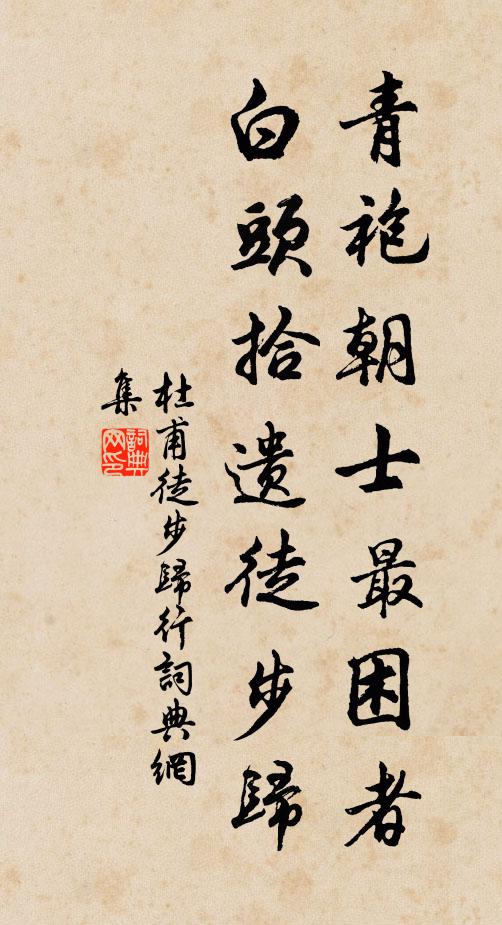 青袍朝士最困者
白頭拾遺徒步歸
杜甫徒步歸行詞典網
集
詞典
网印